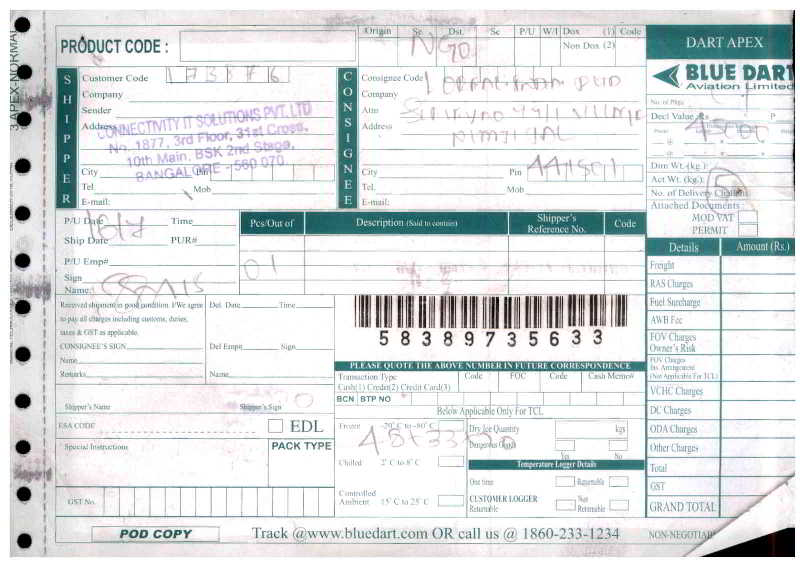 3 APEX-NORMAL
PRODUCT CODE :
Origin Sc Dst. Sc P/U W/I Dox (1) Code
Non Dox (2)
DART APEX
BLUE DART
Aviation Limited
SHIPPER
Customer Code
Company
Sender
Address
CONNECTIVITY IT SOLUTIONS PVT. LTD
No. 1877, 3rd Floor, 31st Cross,
10th Main, BSK 2nd Stage,
BANGALORE - 560 070
City Pin
Tel. Mob
E-mail:
CONSIGNEE
Consignee Code
Company
Attn
Address
City Pin
Tel. Mob
E-mail:
No. of Pkgs
Decl Value Rs P
Dim Wt. (kg.)
Act Wt. (kg.)
No. of Delivery Challans
Attached Documents
MOD VAT
PERMIT
P/U Date 16/7 Time
Ship Date PUR#
P/U Emp#
Sign
Name:
Pcs/Out of Description (Said to contain) Shipper's Reference No. Code
01
Details Amount (Rs.)
Freight
RAS Charges
Fuel Surcharge
AWB Fee
FOV Charges
Owner's Risk
FOV Charges
Ins. Arrangement
(Not Applicable For TCL)
VCHC Charges
DC Charges
ODA Charges
Other Charges
Total
GST
GRAND TOTAL
Received shipment in good condition. I/We agree
to pay all charges including customs, duties,
taxes & GST as applicable.
CONSIGNEE'S SIGN
Name
Remarks
Del. Date Time
Del Emp# Sign
Name
58389735633
PLEASE QUOTE THE ABOVE NUMBER IN FUTURE CORRESPONDENCE
Transaction Type Code FOC Code Cash Memo#
Cash(1) Credit(2) Credit Card(3)
BCN BTP NO
Below Applicable Only For TCL
Shipper's Name Shipper's Sign
ESA CODE EDL
Special Instructions PACK TYPE
GST No.
Frozen -20˚ C to -80˚ C
Chilled 2˚ C to 8˚ C
Controlled
Ambient 15˚ C to 25˚ C
Dry Ice Quantity kgs
Dangerous Goods
Yes No
Temperature Logger Details
One time Returnable
CUSTOMER LOGGER
Returnable Not Returnable
POD COPY
Track @www.bluedart.com OR call us @ 1860-233-1234
NON-NEGOTIAB